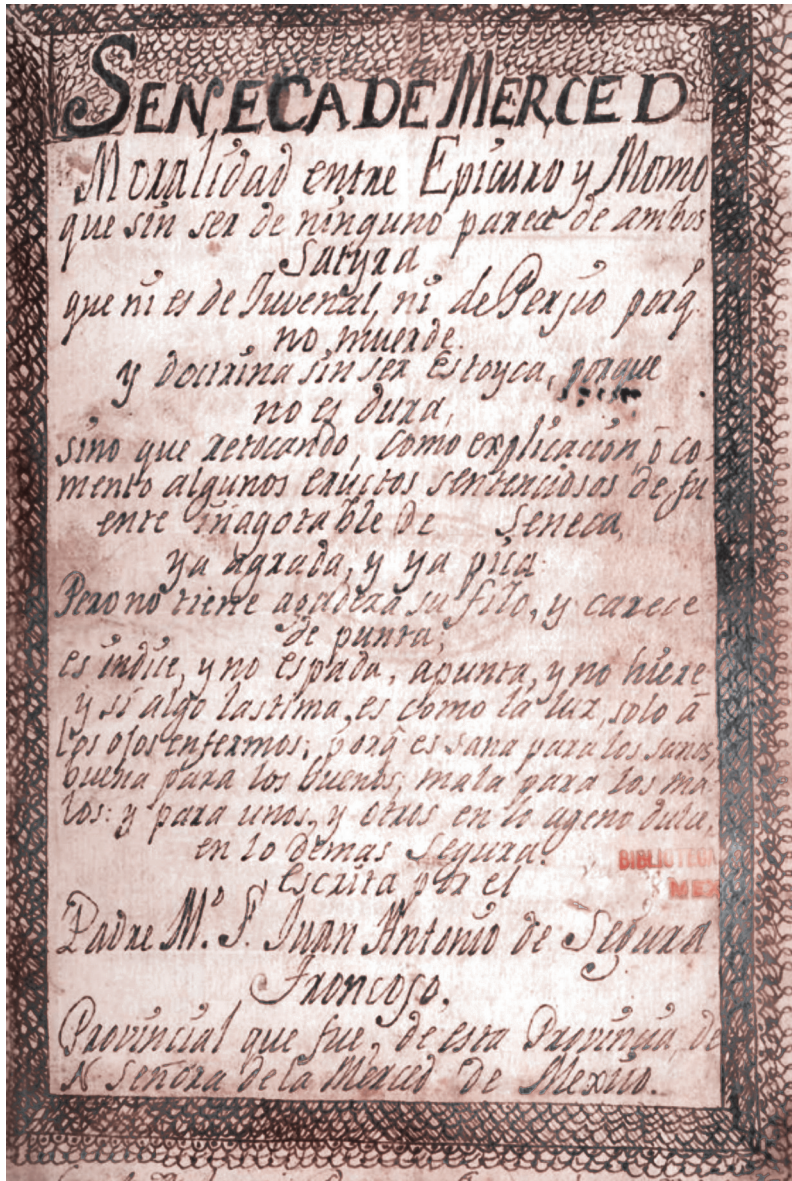 SENECA DE MERCED
Moralidad entre Epicuro y Momo
que sin ser de ninguno parece de ambos
Satyra
que ni es de Iuvenal, ni de Persio porq
no muerde.
y doctrina sin ser Estoyca, porque
no es dura,
sino que retocando, como explicacion, ò co
mento algunos eructos sentenciosos de fu
ente inagotable de Seneca,
ya agrada, y ya pica
Pero no tiene agadera su filo, y carece
de punta;
es indice, y no espada, apunta, y no hiere
y si algo lastima, es como la luz, solo â
los ojos enfermos; porq̃ es sana para los sanos,
buena para los buenos, mala para los ma
los: y para unos, y otros en lo ageno dulce,
en lo demas Segura.
Escrita por el
BIBLIOTECA
MEX
Padre M.º F. Juan Antonio de Segura
Troncoso.
Provincial que fue, de esta Provincia, de
N Señora de la Merced de Mexico.